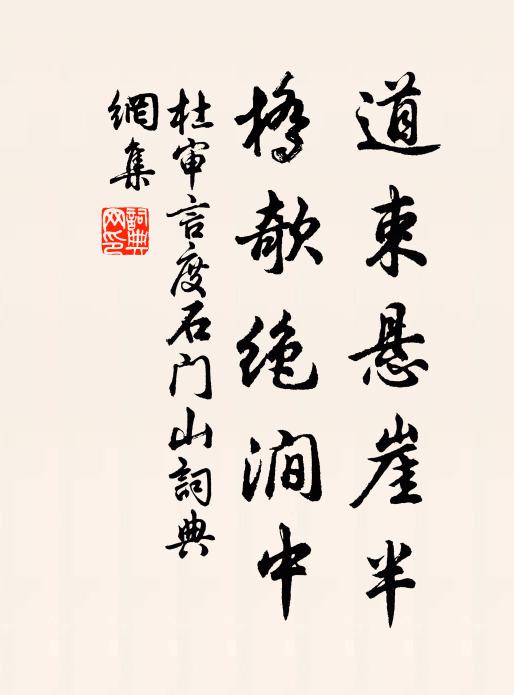 道束悬崖半
橋欹绝澗中
杜审言度石门山詞典
網集
詞典网印